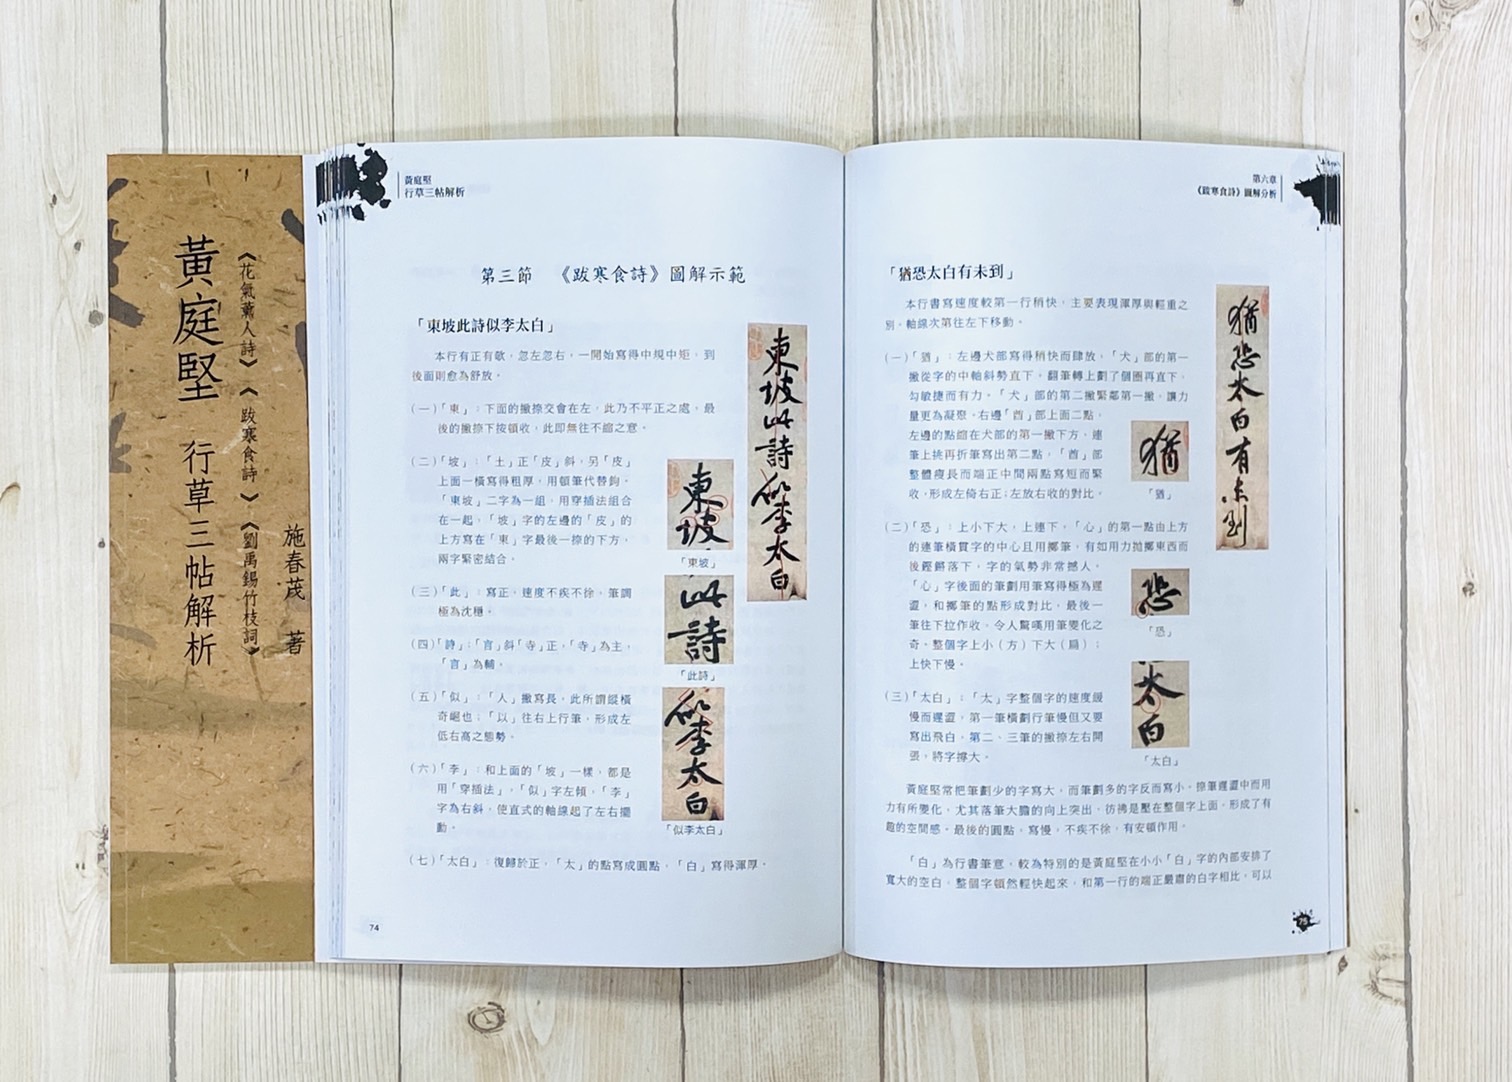 黃庭堅 行草三帖解析
《花氣薰人詩》《跋寒食詩》《劉禹錫竹枝詞》
施春茂 著
黃庭堅
行草三帖解析
第三節 《跋寒食詩》圖解示範
「東坡此詩似李太白」
本行有正有欹，忽左忽右，一開始寫得中規中矩，到
後面則愈為舒放。
（一）「東」：下面的撇捺交會在左，此乃不平正之處，最
後的撇捺下按頓收，此即無往不縮之意。
（二）「坡」：「土」正「皮」斜，另「皮」
上面一橫寫得粗厚，用頓筆代替鉤，
「東坡」二字為一組，用穿插法組合
在一起，「坡」字的左邊的「皮」的
上方寫在「東」字最後一捺的下方，
兩字緊密結合。
（三）「此」：寫正，速度不疾不徐，筆調
極為沈穩。
（四）「詩」：「言」斜「寺」正，「寺」為主，
「言」為輔。
（五）「似」：「人」撇寫長，此所謂縱橫
奇崛也；「以」往右上行筆，形成左
低右高之態勢。
（六）「李」：和上面的「坡」一樣，都是
用「穿插法」，「似」字左傾，「李」
字為右斜，使直式的軸線起了左右擺
動。
（七）「太白」：復歸於正，「太」的點寫成圓點，「白」寫得渾厚。
東坡此詩似李太白
東坡
「東坡」
此詩
「此詩」
似李太白
「似李太白」
74
第六章
《跋寒食詩》圖解分析
「猶恐太白有未到」
本行書寫速度較第一行稍快，主要表現渾厚與輕重之
別，軸線次第往左下移動。
（一）「猶」：左邊犬部寫得稍快而肆放，「犬」部的第一
撇從字的中軸斜勢直下，翻筆轉上劃了個圈再直下，
勾敏捷而有力。「犬」部的第二撇緊鄰第一撇，讓力
量更為凝聚。右邊「酋」部上面二點，
左邊的點縮在犬部的第一撇下方，連
筆上挑再折筆寫出第二點，「酋」部
整體瘦長而端正中間兩點寫短而緊
收，形成左倚右正；左放右收的對比。
（二）「恐」：上小下大，上連下，「心」的第一點由上方
的連筆橫貫字的中心且用擲筆，有如用力拋擲東西而
後鏗鏘落下，字的氣勢非常撼人。
「心」字後面的筆劃用筆寫得極為遲
澀，和擲筆的點形成對比，最後一
筆往下拉作收，令人驚嘆用筆變化之
奇。整個字上小（方）下大（扁）；
上快下慢。
（三）「太白」：「太」字整個字的速度緩
慢而遲澀，第一筆橫劃行筆慢但又要
寫出飛白，第二、三筆的撇捺左右開
張，將字撐大。
黃庭堅常把筆劃少的字寫大，而筆劃多的字反而寫小。捺筆遲澀中而用
力有所變化，尤其落筆大膽的向上突出，彷彿是壓在整個字上面，形成了有
趣的空間感。最後的圓點，寫慢，不疾不徐，有安頓作用。
「白」為行書筆意，較為特別的是黃庭堅在小小「白」字的內部安排了
寬大的空白，整個字頓然輕快起來，和第一行的端正嚴肅的白字相比，可以
猶恐太白有未到
猶
「猶」
恐
「恐」
太白
「太白」
75